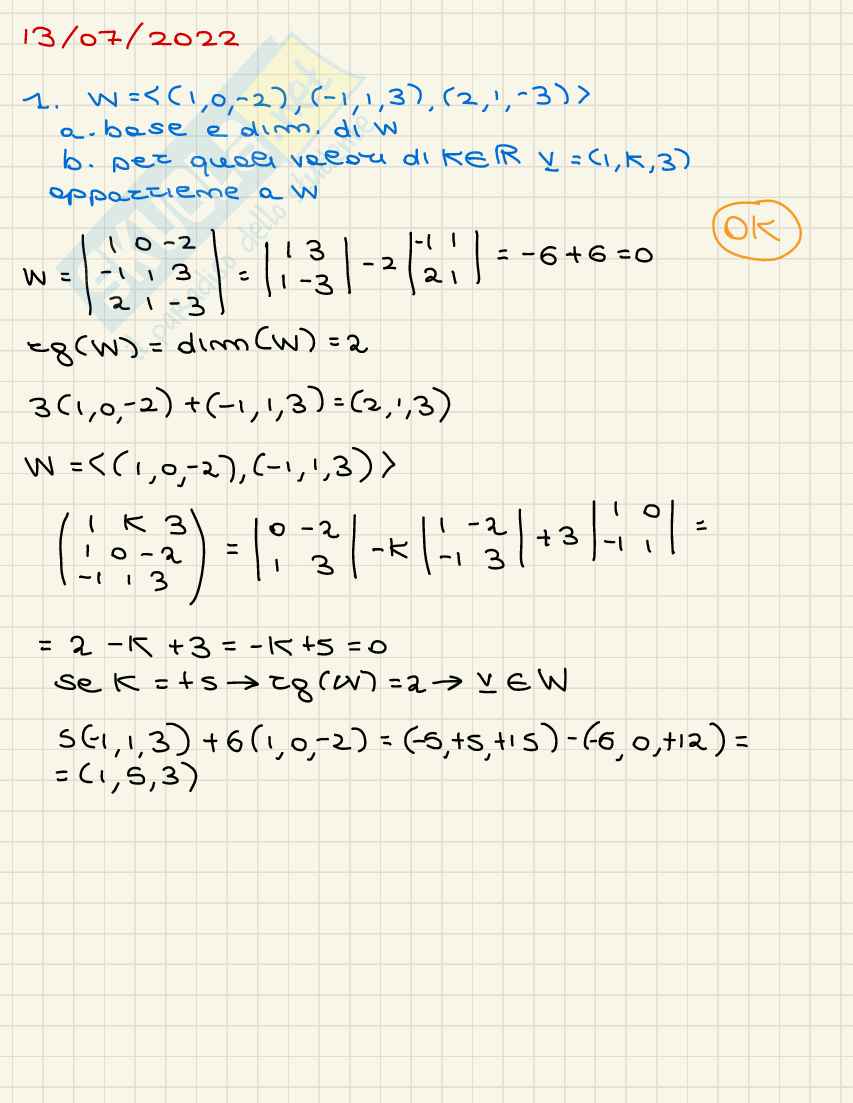 13/07/2022
1. W = <(1,0,-2), (-1,1,3), (2,1,-3)>
a. base e dim. di W
b. per quali valori di K∈ℝ v = (1,K,3)
appartiene a W
OK
W = | 1 0 -2 | = | 1 3 | - 2 | -1 1 | = -6+6 = 0
| -1 1 3 | | 1 -3 | | 2 1 |
| 2 1 -3 |
rg(W) = dim(W) = 2
3(1,0,-2) + (-1,1,3) = (2,1,3)
W = <(1,0,-2), (-1,1,3)>
( 1 K 3 ) = | 0 -2 | - K | 1 -2 | + 3 | 1 0 | =
( 1 0 -2 ) | 1 3 | | -1 3 | | -1 1 |
( -1 1 3 )
= 2 - K + 3 = -K+5 = 0
se K = +5 → rg(W) = 2 → v ∈ W
5(-1,1,3) + 6(1,0,-2) = (-5,+5,+15) - (-6,0,+12) =
= (1,5,3)